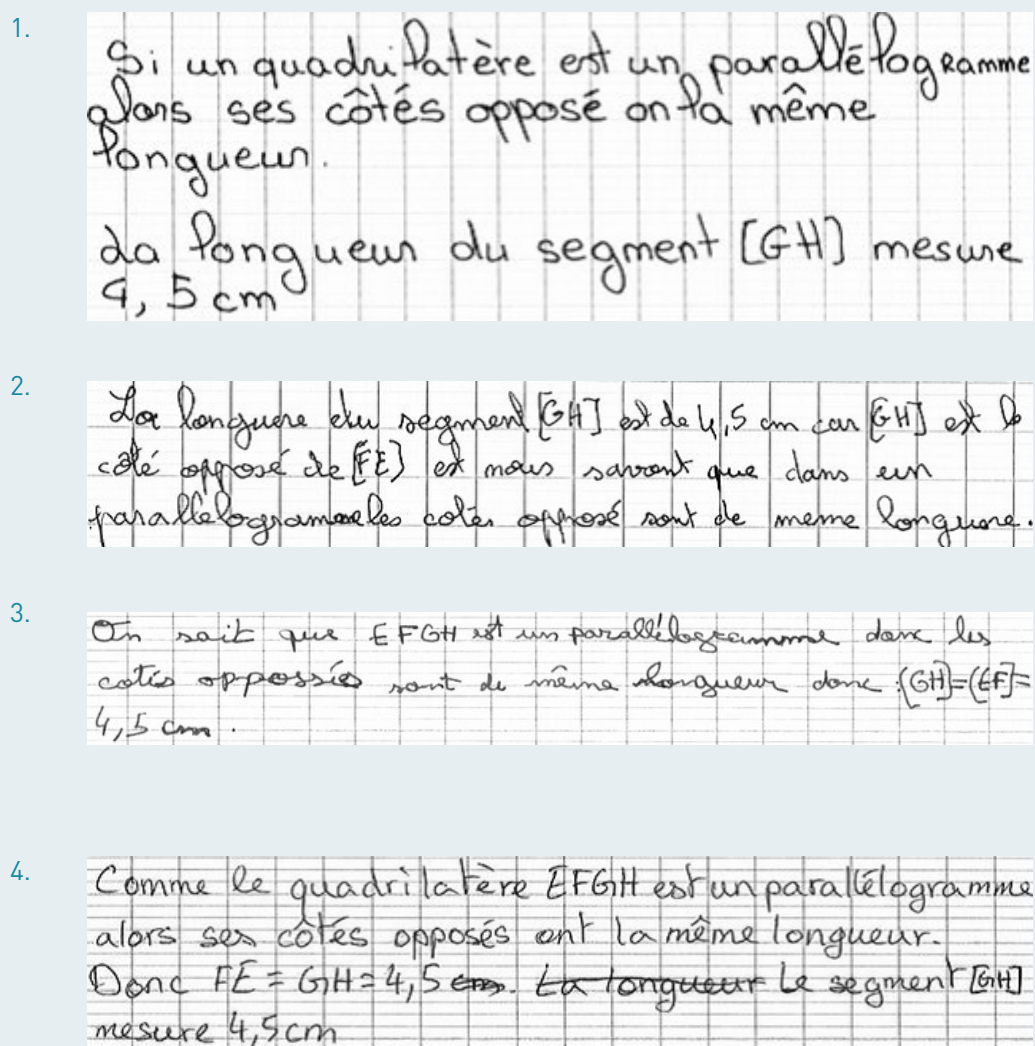 1.
Si un quadrilatère est un parallélogramme
alors ses côtés opposé on la même
longueur.
La longueur du segment [GH] mesure
4,5 cm
2.
La longuere du segment [GH] est de 4,5 cm car [GH] est le
côté opposé de [FE] et nous savont que dans un
parallèlogramme les cotés opposé sont de meme longuere.
3.
On sait que EFGH est un parallélogramme donc les
cotés oppossés sont de même longueur donc [GH]=[EF]=
4,5 cm.
4.
Comme le quadrilatère EFGH est un parallélogramme
alors ses côtés opposés ont la même longueur.
Donc FE = GH = 4,5 cm. La longueur Le segment [GH]
mesure 4,5cm